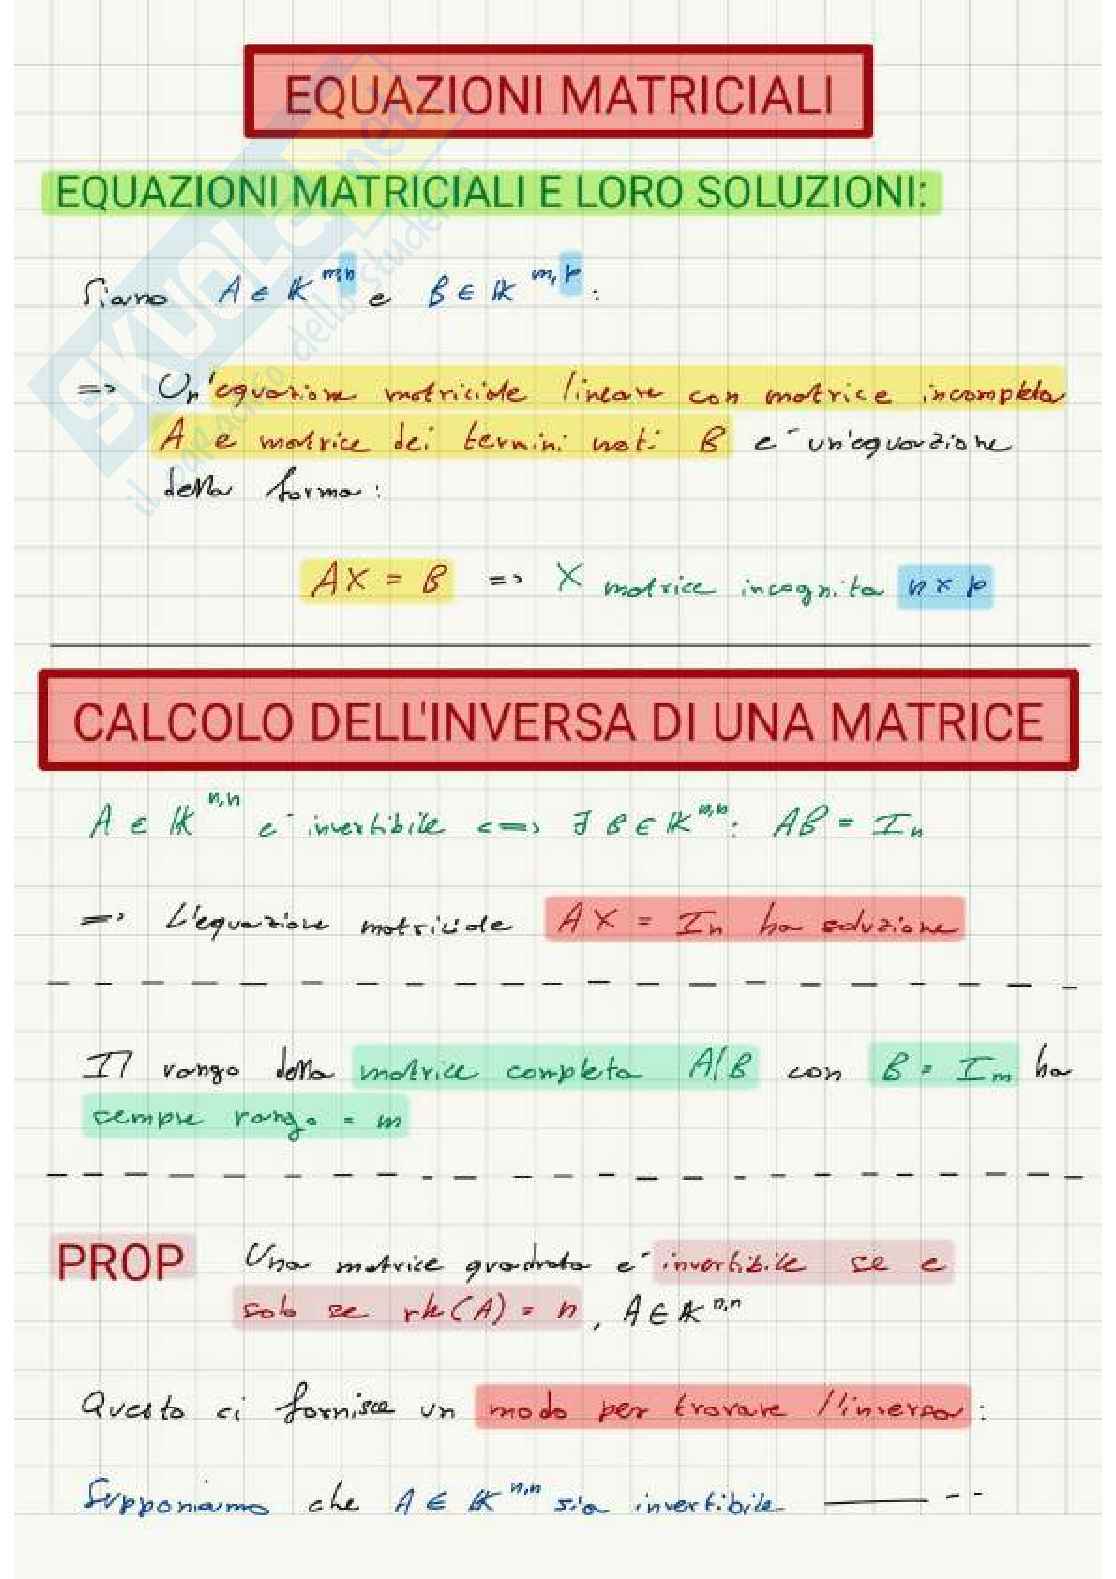 EQUAZIONI MATRICIALI
EQUAZIONI MATRICIALI E LORO SOLUZIONI:
Siano A ∈ K^{m,n} e B ∈ K^{m,p}:
=> Un'equazione matriciale lineare con matrice incompleta
A e matrice dei termini noti B e' un'equazione
della forma:
AX = B => X matrice incognita n x p
CALCOLO DELL'INVERSA DI UNA MATRICE
A ∈ K^{n,n} e' invertibile <=> ∃ B ∈ K^{n,n}: AB = I_n
=> L'equazione matriciale AX = I_n ha soluzione
Il rango della matrice completa A|B con B = I_m ha
sempre rango = m
PROP Una matrice quadrata e' invertibile se e
solo se rk(A) = n, A ∈ K^{n,n}
Questo ci fornisce un modo per trovare l'inversa:
Supponiamo che A ∈ K^{n,n} sia invertibile
SKUOLA.net
il paradiso dello studente